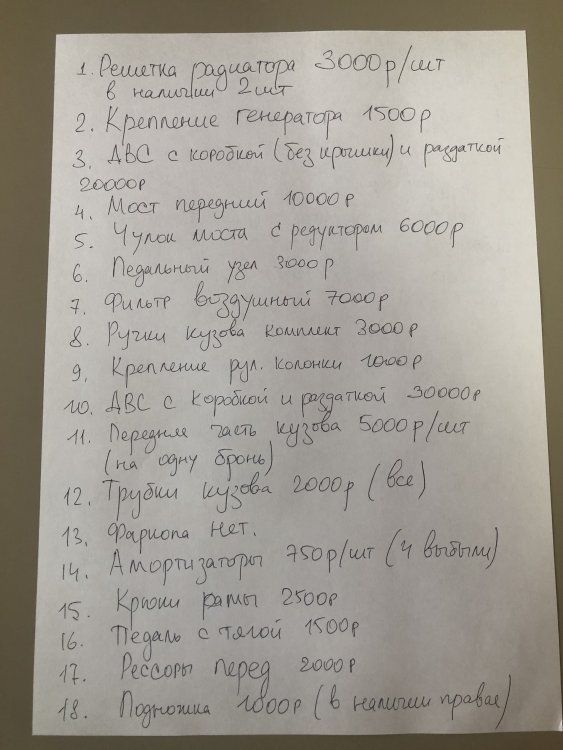 1. Решетка радиатора 3000р/шт
в наличии 2шт
2. Крепление генератора 1500р
3. ДВС с коробкой (без крышки) и раздаткой
20000р
4. Мост передний 10000р
5. Чулок моста с редуктором 6000р
6. Педальный узел 3000р
7. Фильтр воздушный 7000р
8. Ручки кузова комплект 3000р
9. Крепление рул. колонки 1000р
10. ДВС с коробкой и раздаткой 30000р
11. Передняя часть кузова 5000р/шт
(на одну бронь)
12. Трубки кузова 2000р (все)
13. Фаркопа нет.
14. Амортизаторы 750р/шт (4 выбыли)
15. Крюки рамы 2500р
16. Педаль с тягой 1500р
17. Рессоры перед 2000р
18. Подножка 1000р (в наличии правая)